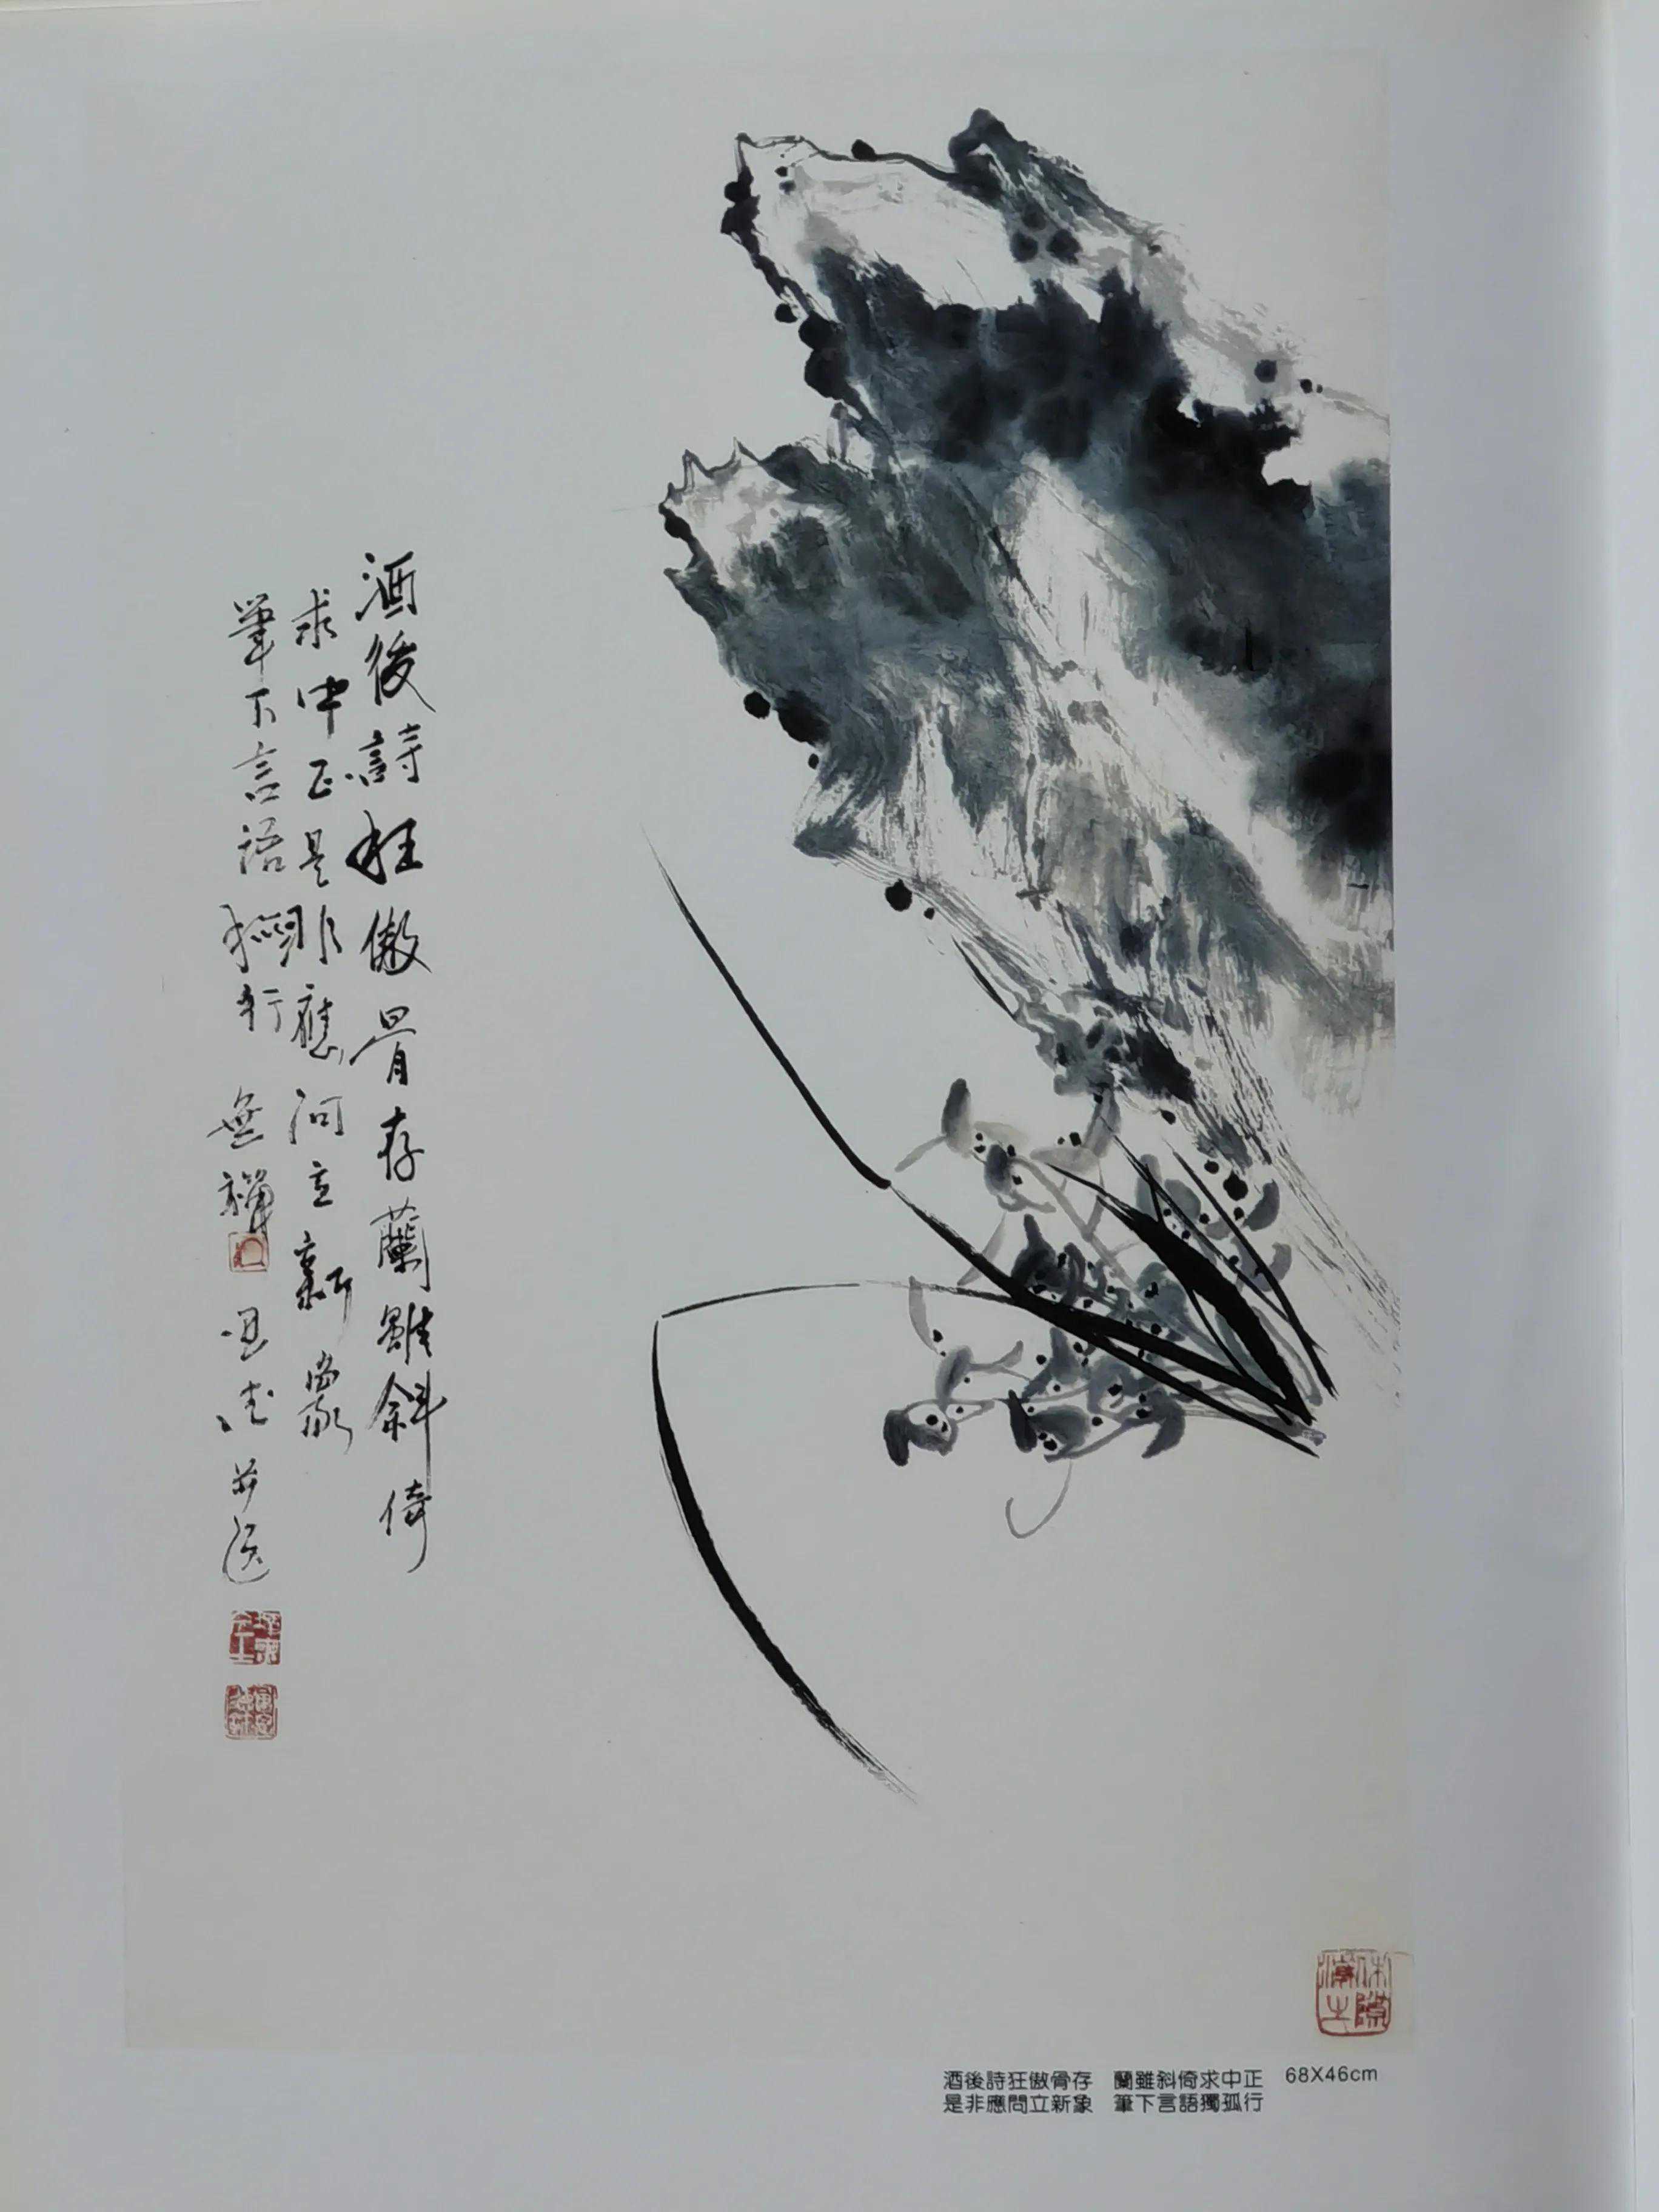 酒後詩狂傲骨存蘭雖斜倚
求中正是非應問立新象
筆下言語獨行
無禪
酒後詩狂傲骨存　蘭雖斜倚求中正　68X46cm
是非應問立新象　筆下言語獨孤行